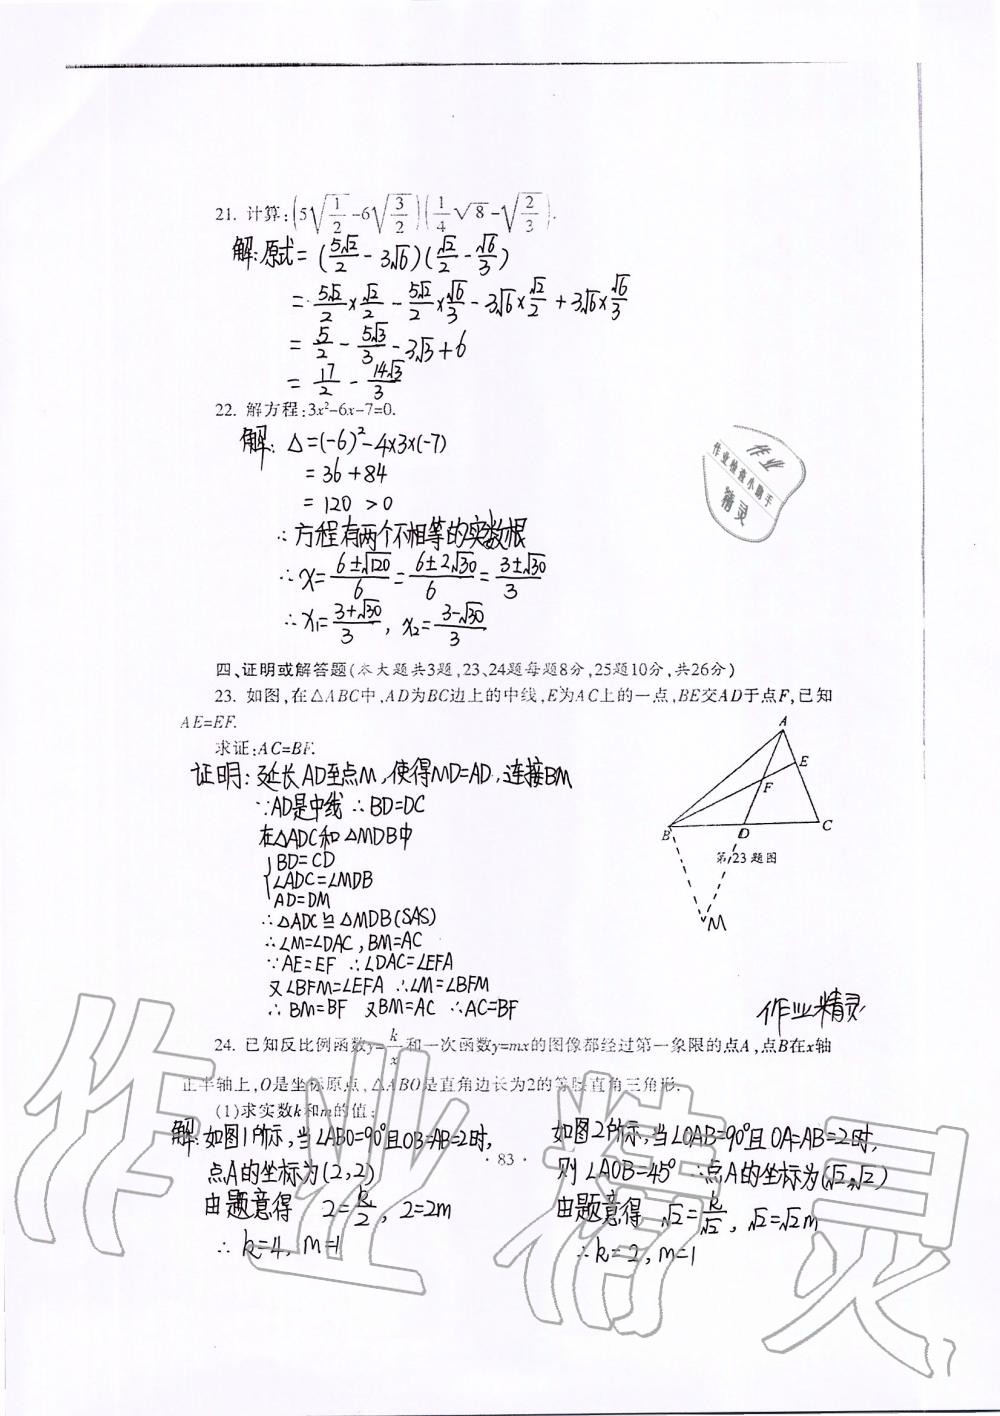 21. 计算:(5√(1/2)-6√(3/2))(1/4√8-√(2/3)).
解:原式=(5√2/2-3√6)(√2/2-√6/3)
=5√2/2×√2/2-5√2/2×√6/3-3√6×√2/2+3√6×√6/3
=5/2-5√3/3-3√3+6
=17/2-14√3/3
22. 解方程:3x²-6x-7=0.
解:△=(-6)²-4×3×(-7)
=36+84
=120>0
∴方程有两个不相等的实数根
∴x=(6±√120)/6=(6±2√30)/6=(3±√30)/3
∴x₁=(3+√30)/3, x₂=(3-√30)/3
作业
作业检查小助手
精灵
四、证明或解答题(本大题共3题,23、24题每题8分,25题10分,共26分)
23. 如图,在△ABC中,AD为BC边上的中线,E为AC上的一点,BE交AD于点F,已知
AE=EF.
求证:AC=BF.
证明:延长AD至点M,使得MD=AD,连接BM
∵AD是中线∴BD=DC
在△ADC和△MDB中
{BD=CD
∠ADC=∠MDB
AD=DM
∴△ADC≌△MDB(SAS)
∴∠M=∠DAC,BM=AC
∵AE=EF ∴∠DAC=∠EFA
又∠BFM=∠EFA ∴∠M=∠BFM
∴BM=BF 又BM=AC ∴AC=BF
A
E
F
B
D
C
第23题图
M
作业精灵
24. 已知反比例函数y=k/x和一次函数y=mx的图像都经过第一象限的点A,点B在x轴
正半轴上,O是坐标原点,△ABO是直角边长为2的等腰直角三角形.
(1)求实数k和m的值;
解:如图1所示,当∠ABO=90°且OB=AB=2时,
点A的坐标为(2,2)
由题意得 2=k/2, 2=2m
∴k=4, m=1
如图2所示,当∠OAB=90°且OA=AB=2时,
则∠AOB=45° ∴点A的坐标为(√2,√2)
由题意得 √2=k/√2, √2=√2m
∴k=2, m=1
· 83 ·
作业精灵
7